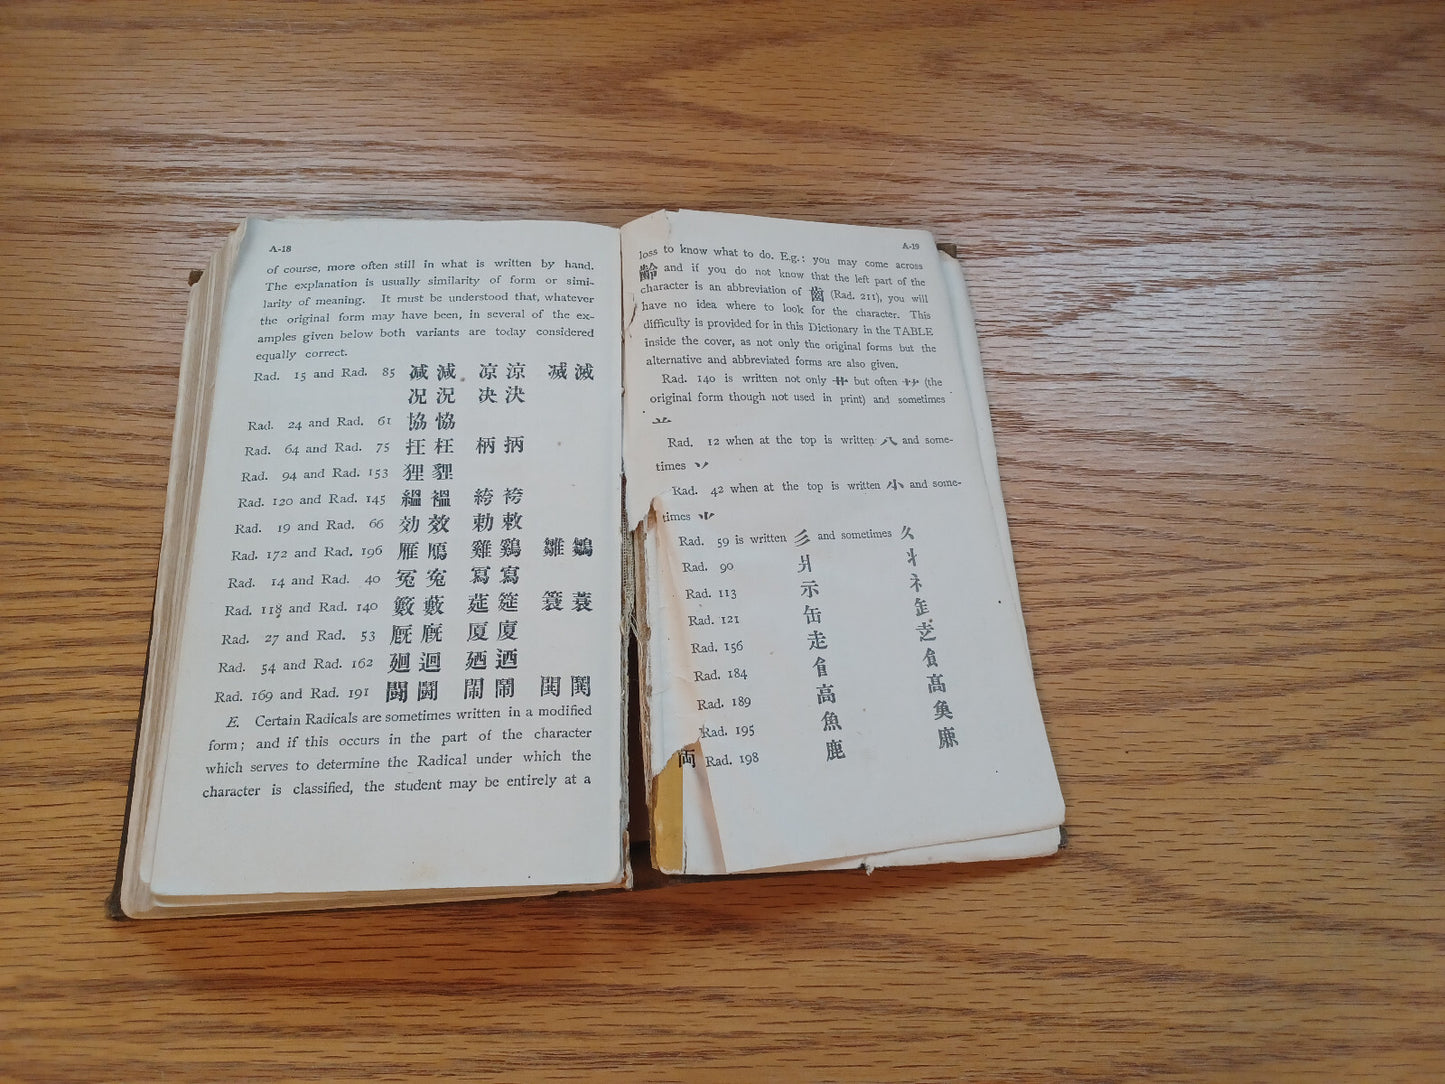 A-18
of course, more often still in what is written by hand.
The explanation is usually similarity of form or simi-
larity of meaning. It must be understood that, whatever
the original form may have been, in several of the ex-
amples given below both variants are today considered
equally correct.
Rad. 15 and Rad. 85 减 減 凉 涼 滅
况 況 决 決
Rad. 24 and Rad. 61 協 恊
Rad. 64 and Rad. 75 抂 枉 柄 抦
Rad. 94 and Rad. 153 狸 貍
Rad. 120 and Rad. 145 縕 褞 絝 袴
Rad. 19 and Rad. 66 効 效 勅 敕
Rad. 172 and Rad. 196 雁 鴈 雞 鷄 雛 鶵
Rad. 14 and Rad. 40 冤 寃 冩 寫
Rad. 118 and Rad. 140 籔 藪 莚 筵 簑 蓑
Rad. 27 and Rad. 53 厩 廐 厦 廈
Rad. 54 and Rad. 162 廻 迴 廼 迺
Rad. 169 and Rad. 191 闘 鬪 閙 鬧 閧 鬨
E. Certain Radicals are sometimes written in a modified
form; and if this occurs in the part of the character
which serves to determine the Radical under which the
character is classified, the student may be entirely at a
A-19
loss to know what to do. E.g.: you may come across
齢 and if you do not know that the left part of the
character is an abbreviation of 齒 (Rad. 211), you will
have no idea where to look for the character. This
difficulty is provided for in this Dictionary in the TABLE
inside the cover, as not only the original forms but the
alternative and abbreviated forms are also given.
Rad. 140 is written not only 艹 but often 艹 (the
original form though not used in print) and sometimes
Rad. 12 when at the top is written 八 and some-
times 丷
Rad. 42 when at the top is written 小 and some-
times ⺌
Rad. 59 is written 彡 and sometimes 久
Rad. 90 爿 丬
Rad. 113 示 礻
Rad. 121 缶
Rad. 156 走 赱
Rad. 184 飠
Rad. 189 高 髙
Rad. 195 魚
Rad. 198 鹿
両